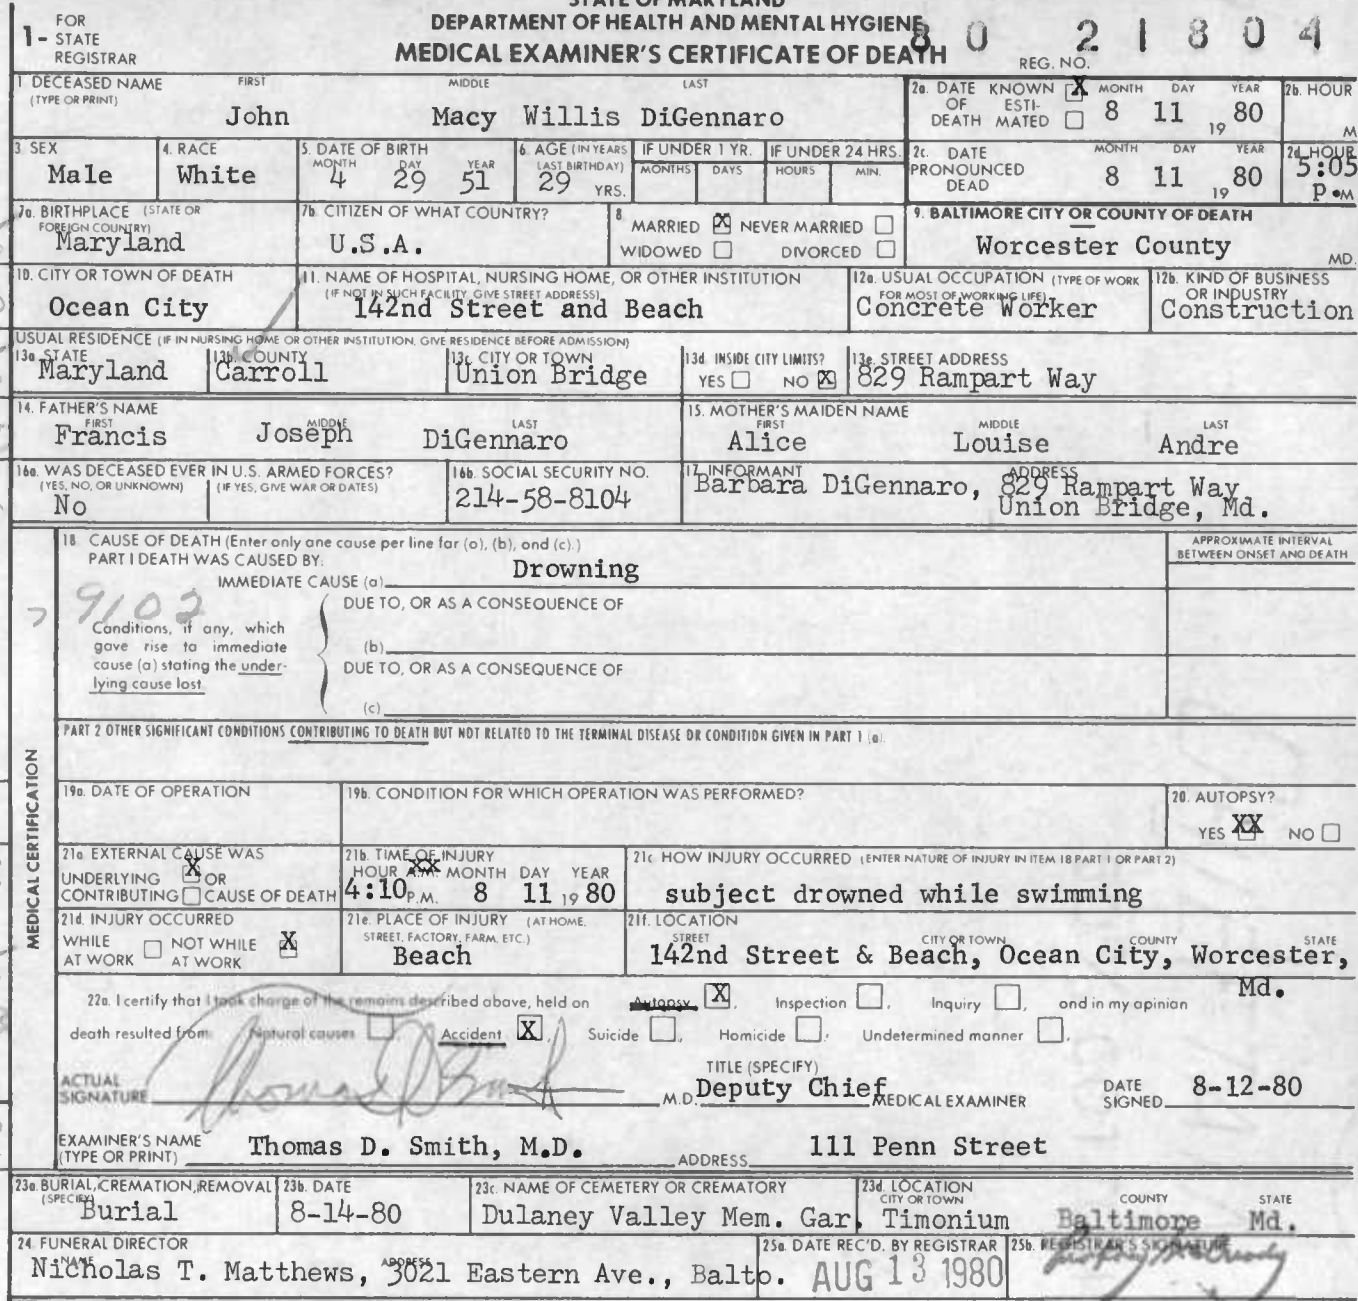 STATE OF MARYLAND
DEPARTMENT OF HEALTH AND MENTAL HYGIENE
MEDICAL EXAMINER'S CERTIFICATE OF DEATH
1- FOR STATE REGISTRAR
REG. NO. 80 21804
1 DECEASED NAME (TYPE OR PRINT) FIRST MIDDLE LAST
John Macy Willis DiGennaro
2a. DATE OF DEATH KNOWN X ESTIMATED MONTH DAY YEAR 8 11 19 80
2b. HOUR M
3 SEX Male
4. RACE White
5. DATE OF BIRTH MONTH DAY YEAR 4 29 51
6. AGE (IN YEARS LAST BIRTHDAY) 29 YRS.
IF UNDER 1 YR. MONTHS DAYS
IF UNDER 24 HRS. HOURS MIN.
2c. DATE PRONOUNCED DEAD MONTH DAY YEAR 8 11 19 80
2d. HOUR 5:05 P.M
7a. BIRTHPLACE (STATE OR FOREIGN COUNTRY) Maryland
7b. CITIZEN OF WHAT COUNTRY? U.S.A.
8 MARRIED X NEVER MARRIED WIDOWED DIVORCED
9. BALTIMORE CITY OR COUNTY OF DEATH Worcester County MD.
10. CITY OR TOWN OF DEATH Ocean City
11. NAME OF HOSPITAL, NURSING HOME, OR OTHER INSTITUTION (IF NOT IN SUCH FACILITY, GIVE STREET ADDRESS) 142nd Street and Beach
12a. USUAL OCCUPATION (TYPE OF WORK FOR MOST OF WORKING LIFE) Concrete Worker
12b. KIND OF BUSINESS OR INDUSTRY Construction
USUAL RESIDENCE (IF IN NURSING HOME OR OTHER INSTITUTION, GIVE RESIDENCE BEFORE ADMISSION)
13a STATE Maryland
13b. COUNTY Carroll
13c. CITY OR TOWN Union Bridge
13d. INSIDE CITY LIMITS? YES NO X
13e. STREET ADDRESS 829 Rampart Way
14. FATHER'S NAME FIRST MIDDLE LAST Francis Joseph DiGennaro
15. MOTHER'S MAIDEN NAME FIRST MIDDLE LAST Alice Louise Andre
16a. WAS DECEASED EVER IN U.S. ARMED FORCES? (YES, NO, OR UNKNOWN) (IF YES, GIVE WAR OR DATES) No
16b. SOCIAL SECURITY NO. 214-58-8104
17 INFORMANT ADDRESS Barbara DiGennaro, 829 Rampart Way
Union Bridge, Md.
MEDICAL CERTIFICATION
18. CAUSE OF DEATH (Enter only one cause per line for (a), (b), and (c).)
APPROXIMATE INTERVAL BETWEEN ONSET AND DEATH
PART I DEATH WAS CAUSED BY:
IMMEDIATE CAUSE (a) Drowning
9102
DUE TO, OR AS A CONSEQUENCE OF
Conditions, if any, which gave rise to immediate cause (a) stating the underlying cause last.
(b)
DUE TO, OR AS A CONSEQUENCE OF
(c)
PART 2 OTHER SIGNIFICANT CONDITIONS CONTRIBUTING TO DEATH BUT NOT RELATED TO THE TERMINAL DISEASE OR CONDITION GIVEN IN PART 1 (a).
19a. DATE OF OPERATION
19b. CONDITION FOR WHICH OPERATION WAS PERFORMED?
20. AUTOPSY? YES XX NO
21a. EXTERNAL CAUSE WAS UNDERLYING X OR CONTRIBUTING CAUSE OF DEATH
21b. TIME OF INJURY HOUR A.M. XX MONTH DAY YEAR 4:10 P.M. 8 11 19 80
21c HOW INJURY OCCURRED (ENTER NATURE OF INJURY IN ITEM 18 PART 1 OR PART 2) subject drowned while swimming
21d. INJURY OCCURRED WHILE AT WORK NOT WHILE AT WORK X
21e. PLACE OF INJURY (AT HOME, STREET, FACTORY, FARM, ETC.) Beach
21f. LOCATION STREET CITY OR TOWN COUNTY STATE 142nd Street & Beach, Ocean City, Worcester, Md.
22a. I certify that I took charge of the remains described above, held on Autopsy X, Inspection, Inquiry, and in my opinion
death resulted from: Natural causes, Accident X, Suicide, Homicide, Undetermined manner.
ACTUAL SIGNATURE Thomas D Smith M.D.
TITLE (SPECIFY) Deputy Chief MEDICAL EXAMINER
DATE SIGNED 8-12-80
EXAMINER'S NAME (TYPE OR PRINT) Thomas D. Smith, M.D. ADDRESS 111 Penn Street
23a. BURIAL, CREMATION, REMOVAL (SPECIFY) Burial
23b. DATE 8-14-80
23c. NAME OF CEMETERY OR CREMATORY Dulaney Valley Mem. Gar.
23d. LOCATION CITY OR TOWN COUNTY STATE Timonium Baltimore Md.
24. FUNERAL DIRECTOR NAME ADDRESS Nicholas T. Matthews, 3021 Eastern Ave., Balto.
25a. DATE REC'D. BY REGISTRAR AUG 13 1980
25b. REGISTRAR'S SIGNATURE